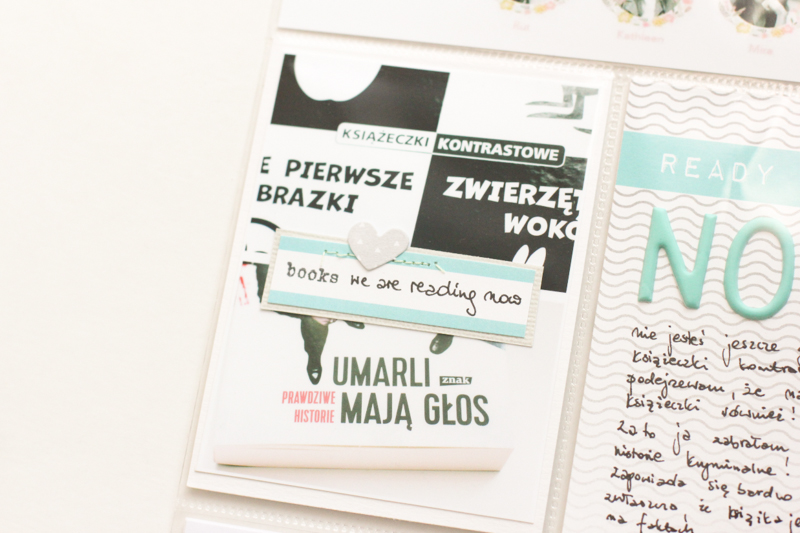 KSIĄŻECZKI KONTRASTOWE
E PIERWSZE
BRAZKI
ZWIERZĘT
WOKÓ
books we are reading now
UMARLI znak
PRAWDZIWE
HISTORIE MAJĄ GŁOS
READY
NO
nie jesteś jeszcze
książeczki kontra
podejrzewam, że
książeczki również!
za to ja zabrałam
historie kryminalne!
zapowiada się bardzo
zwłaszcza że książka je
na faktach